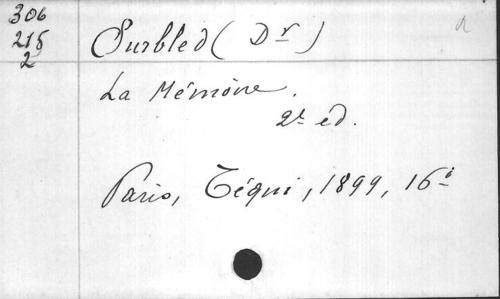 306
215
2
Surbled (Dr)
La Mémoire.
2e éd.
Paris, Téqui, 1899, 16°